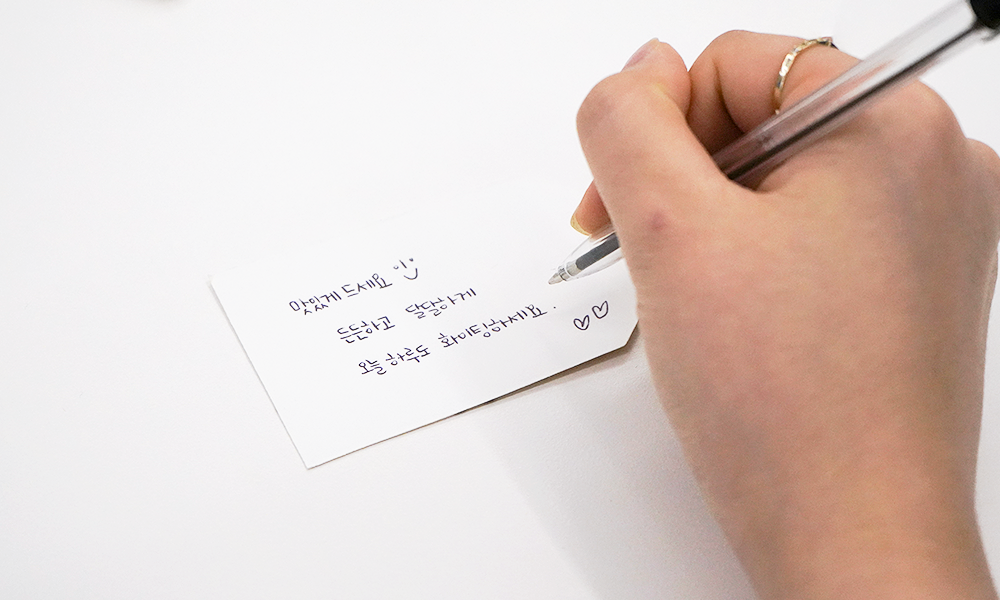 맛있게 드세요
든든하고 달달하게
오늘 하루도 화이팅하세요.